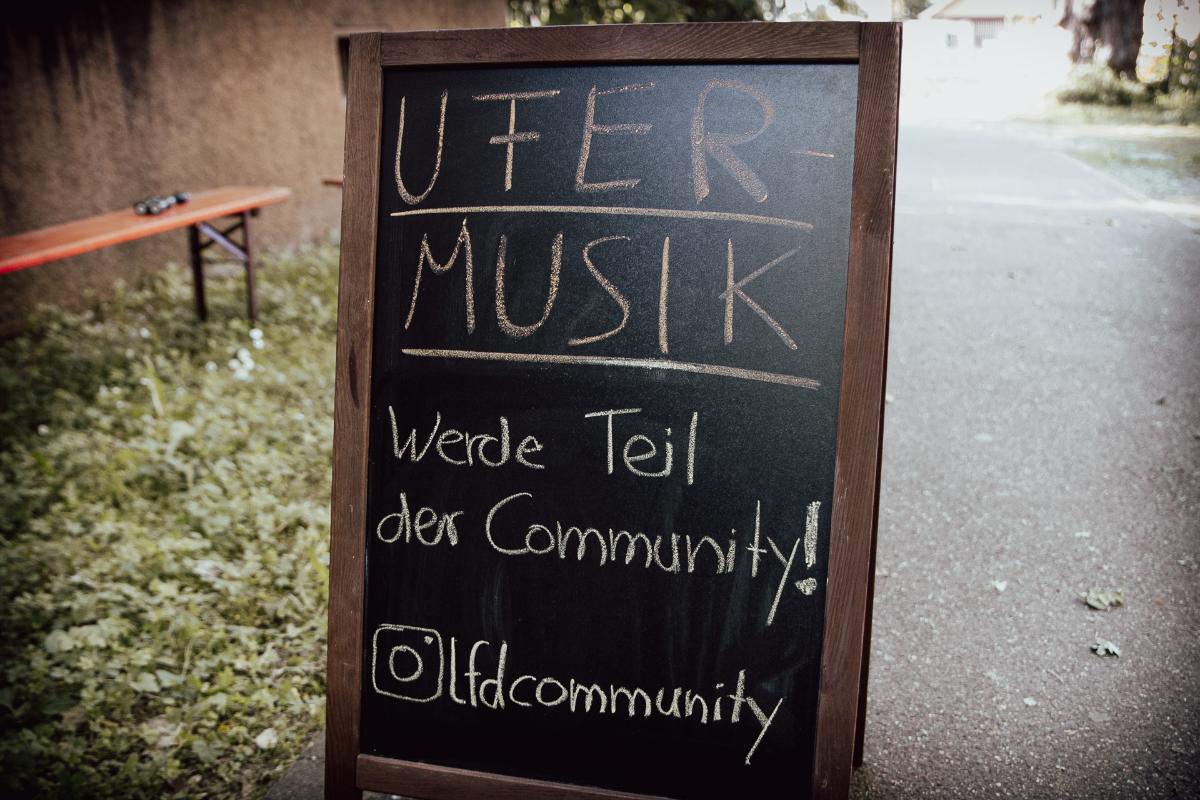 UFER-
MUSIK
Werde Teil
der Community!
lfdcommunity